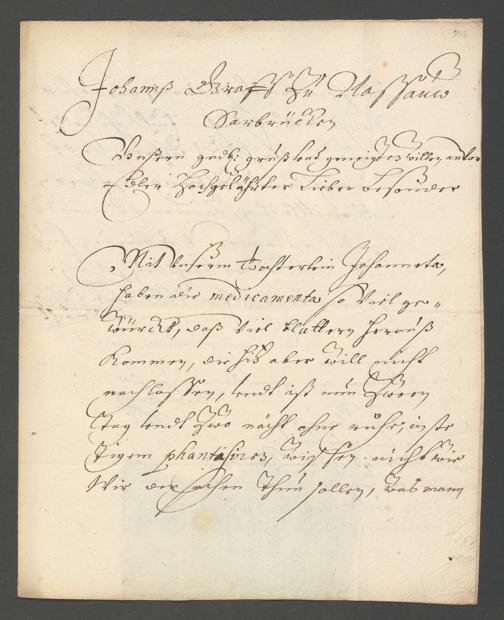 Johannß Graff Zu Nassaw
Sarbrücken
Unsern gnedi: gruß und geneigten willen zuvor
Edler Hochgelährter Lieber besonder
Mit unserm Tochterlein Johanneta,
haben die medicamenta so viel ge-
würckt, daß viel blattern herauß
kommen, die hitz aber will nicht
nachlassen, undt ist nun Zween
tag undt Zwo nächt ohne ruhe, in ste
tigem phantasiren, wissen nicht wie
Wir der sachen thun sollen, Was mann